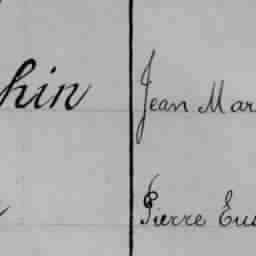 hin Jean Mar
Pierre Eu